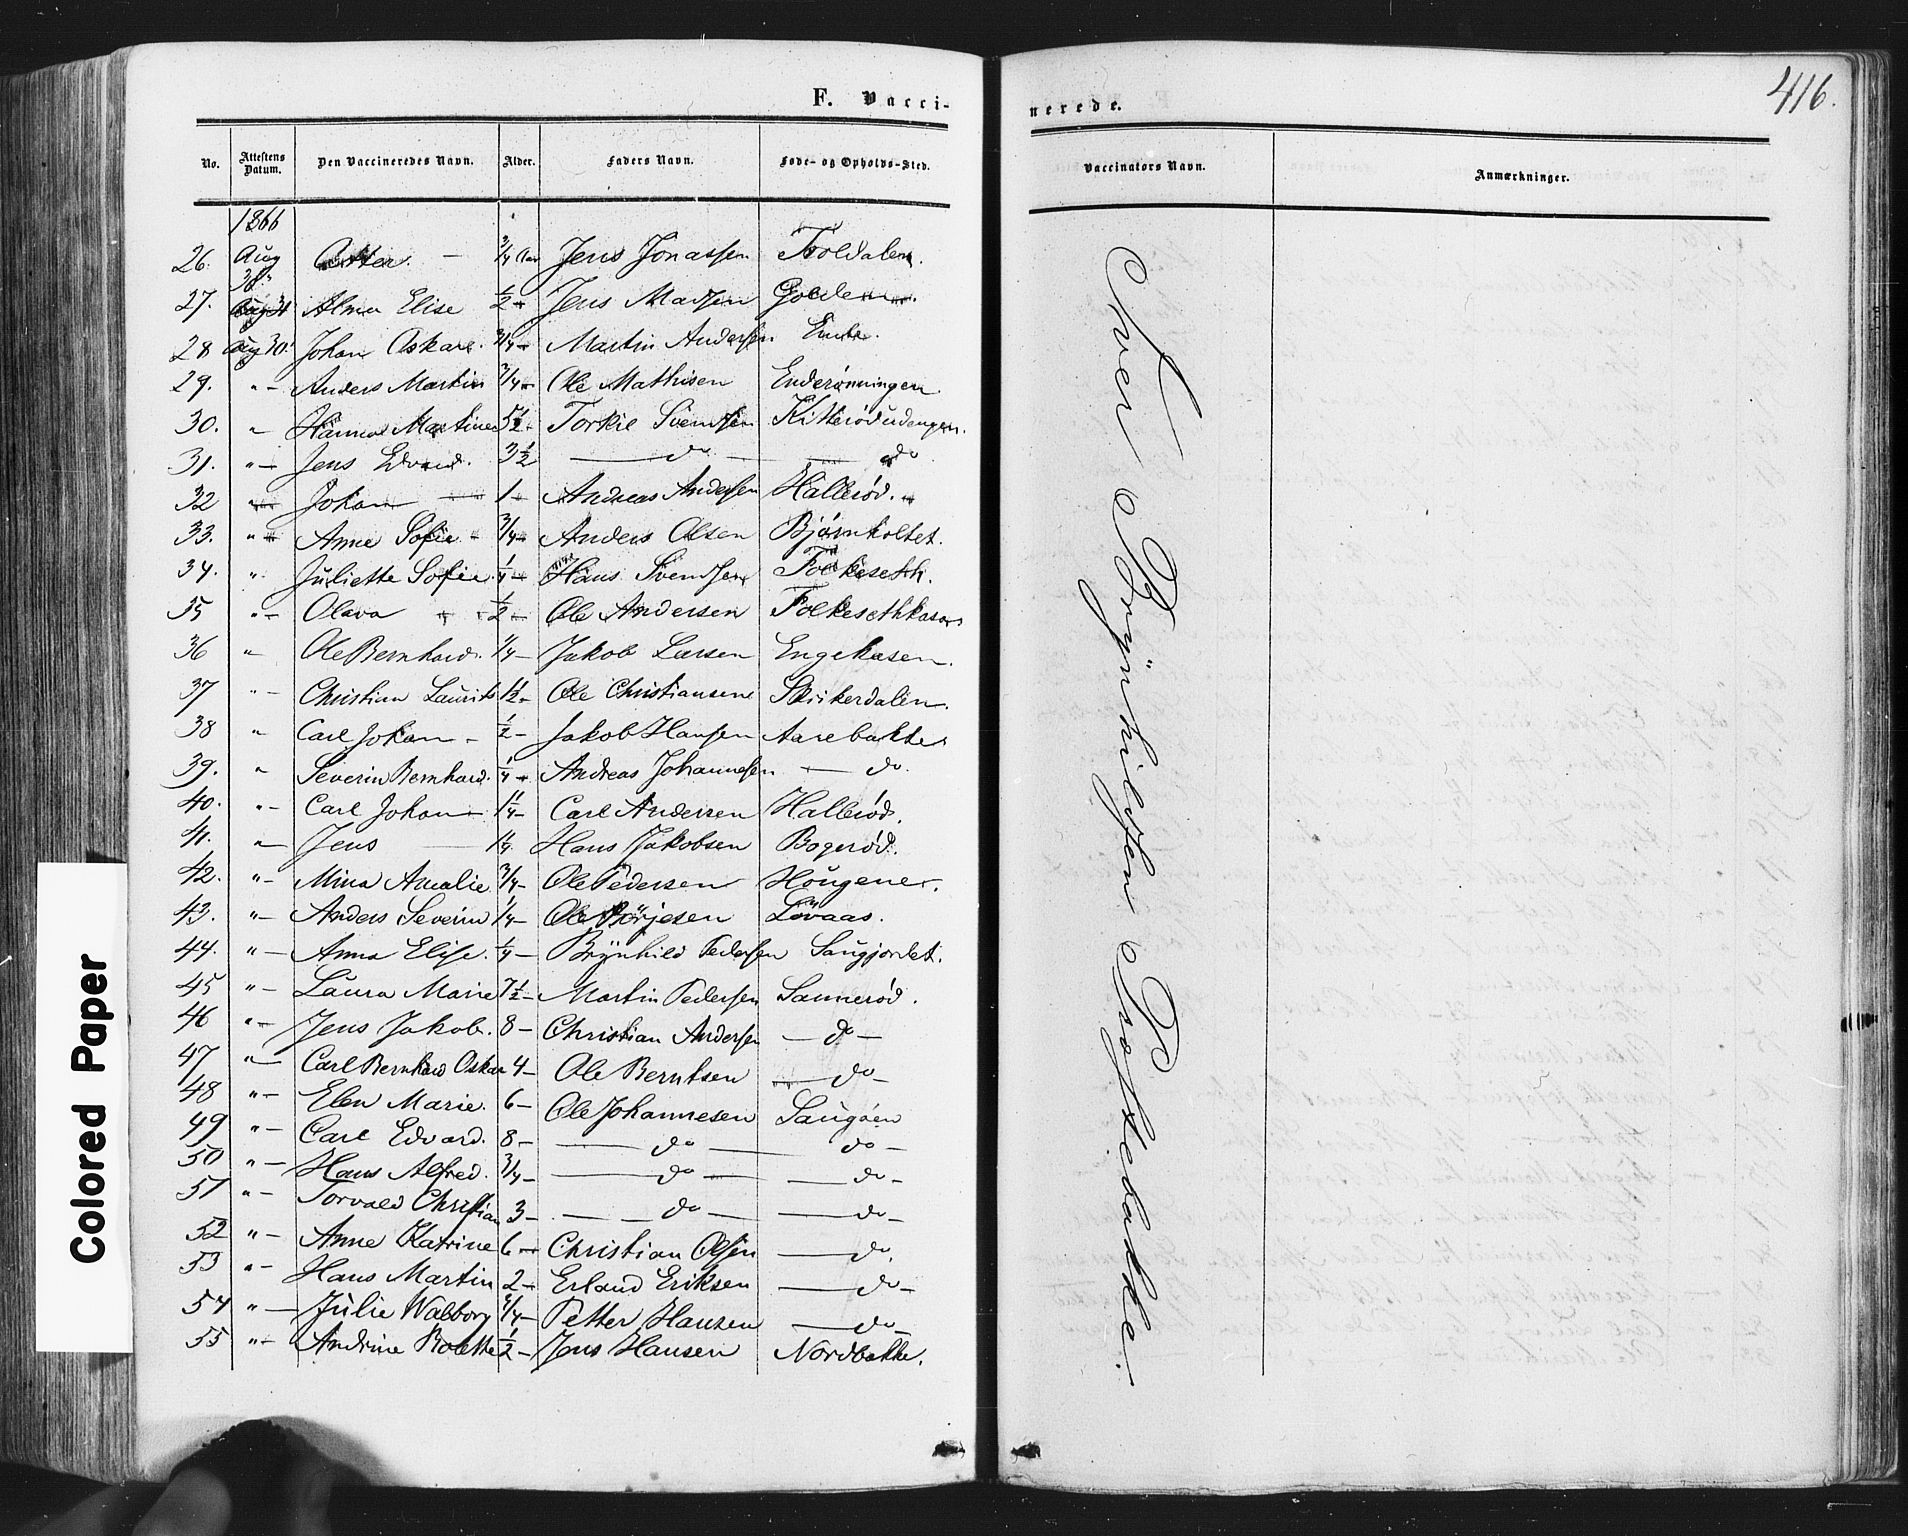 F. Vacci-
No. Attestens Datum. Den Vaccineredes Navn. Alder. Faders Navn. Føde- og Opholds-Sted.
1866
26. Aug 30 — 3/4 Aar Jens Jonassen Toldalen.
27. Aug 31 Alma Elise 1/2 - Jens Madsen
28 Aug 30. Johan Oskar. 3/4 - Martin Andersen
29. "- Anders Martin 3/4 - Ole Mathisen Enderønningen
30. " Hanna Martine 5 1/2 - Torkil Svendsen Kitterødudengen.
31. "- Jens Edvard. 3 1/2 — do — — do
32 " Johan — 1 - Andreas Andersen Hallerød.
33. "- Anne Sofie - 3/4 - Anders Olsen Bjørnholtet.
34. " Juliette Sofie. 1/4 - Hans Svendsen Folkeseth.
35 "- Olava 1/2 - Ole Andersen Folkesethkasa
36 " Ole Bernhard. 1/4 - Jakob Larsen Engekasen.
37 "- Christian Laurits 1 1/2 - Ole Christiansen Skrikerdalen.
38 " Carl Johan - 1/2 - Jakob Hansen Aarebakke
39. " Severin Bernhard. 1/4 - Andreas Johannesen — do.
40. "- Carl Johan 1 1/4 - Carl Andersen Hallerød.
41. " Jens — 1 1/4 Hans Jakobsen Bogerød.
42. "- Mina Amalie 3/4 - Ole Pedersen Hougene.
43. "- Anders Severin 1/4 - Ole Børjesen Løvaas.
44. "- Anna Elise. 1/4 - Brynhild Pedersen Saugjordet.
45 "- Laura Marie 7 1/2 - Martin Pedersen Sannerød.
46 "- Jens Jakob. 8 - Christian Andersen — do —
47 "- Carl Bernhard Oskar 4 - Ole Berntsen — do -
48 "- Elen Marie. 6 - Ole Johannesen Saugøen
49 "- Carl Edvard. 8 - — do — do -
50 "- Hans Alfred. 3/4 - — do — — do -
51 "- Torvald Christian 3 - — do — — do -
52 "- Anne Katrine 6 - Christian Olsen — do.
53 "- Hans Martin 2 - Erland Eriksen — do -
54 "- Julie Walborg /4 - Petter Hansen — do -
55 "- Andrine Bolette 1/2 - Jens Hansen Nordbakke.
Colored Paper
nerede.
416.
Vaccinators Navn. Anmærkninger.
Iver Brynhildsen Proftebakke.